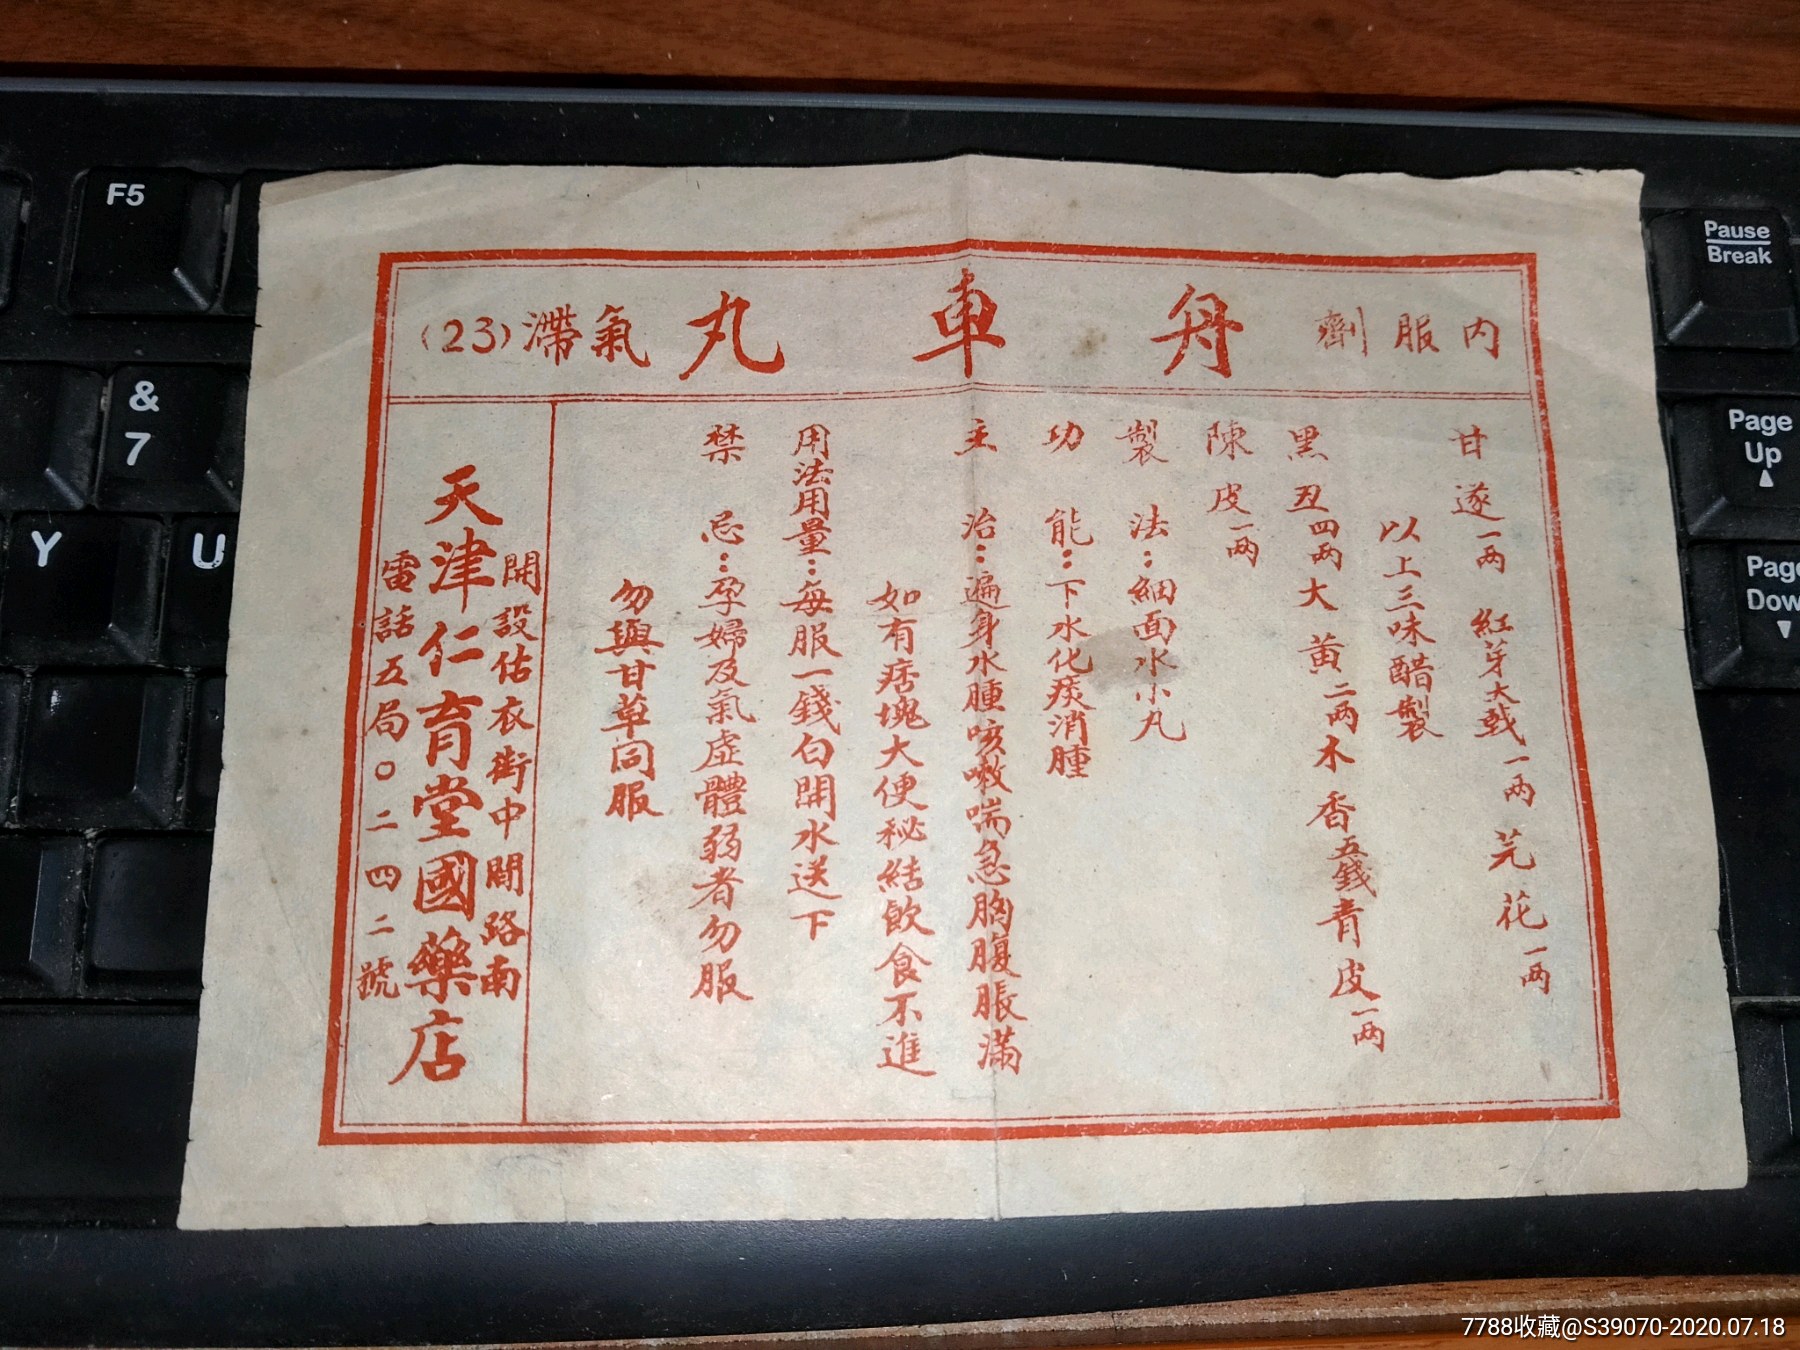 內服劑 舟車丸 氣滯(23)
甘遂一兩 紅芽大戟一兩 芫花一兩
以上三味醋製
黑丑四兩大黃二兩木香五錢青皮一兩
陳皮一兩
製法:細面水小丸
功能:下水化痰消腫
主治:遍身水腫咳嗽喘急胸腹脹滿
如有痞塊大便秘結飲食不進
用法用量:每服一錢白開水送下
禁忌:孕婦及氣虛體弱者勿服
勿與甘草同服
開設估衣街中間路南
天津仁育堂國藥店
電話五局〇二四二號
F5
&
7
Y
U
Pause
Break
Page
Up
Page
Dow
7788收藏@S39070-2020.07.18